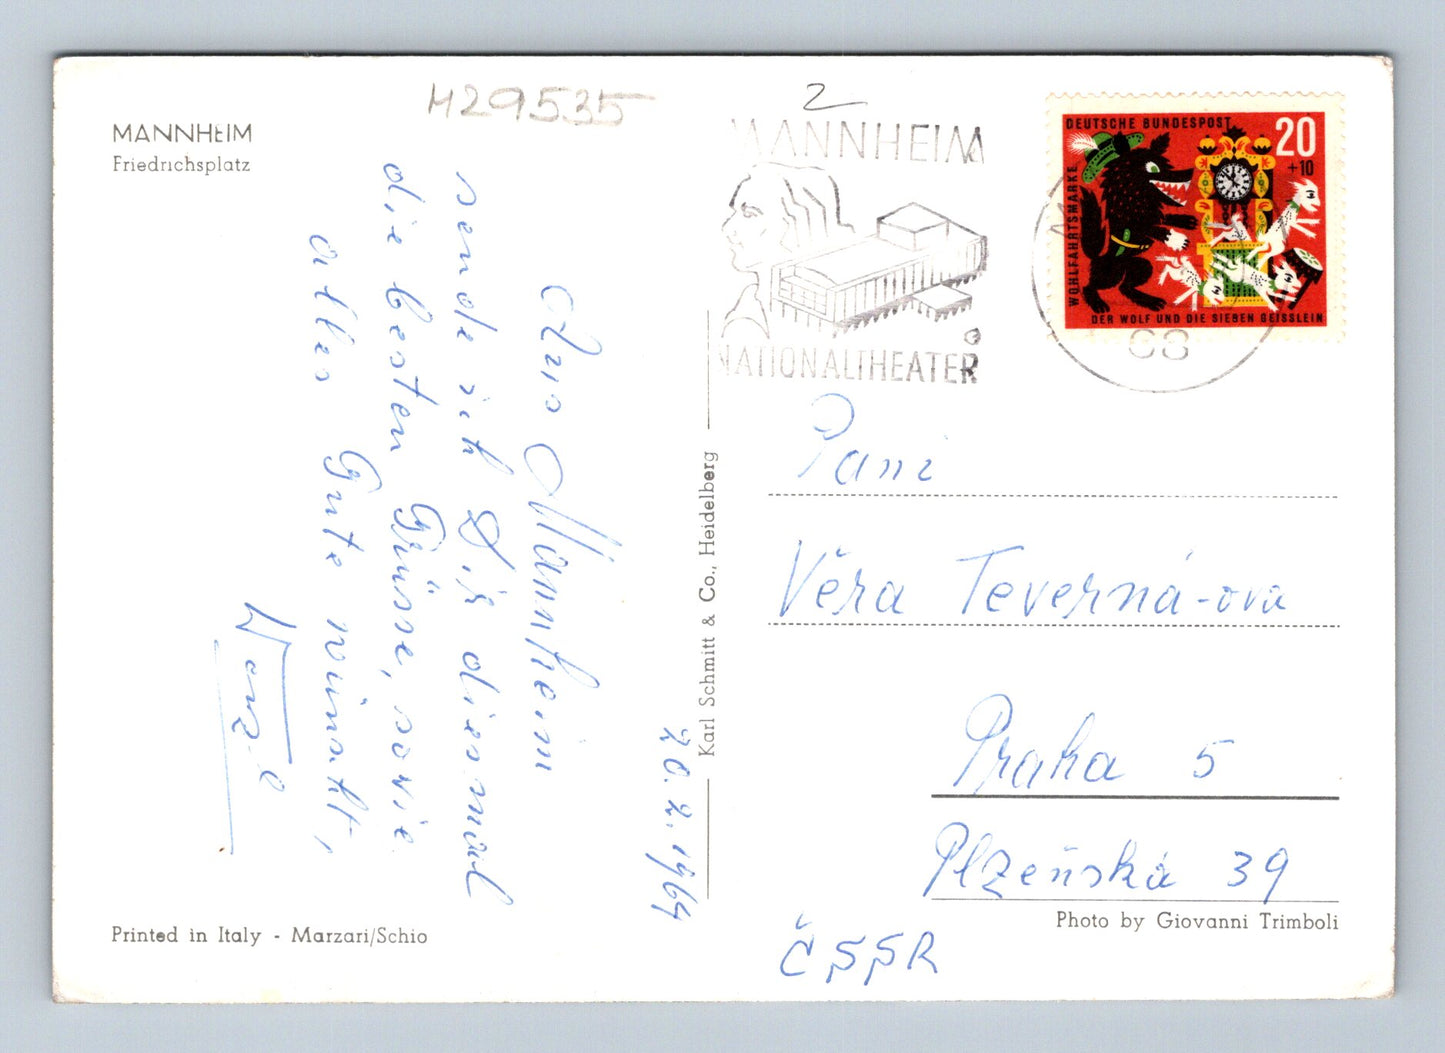 H29535
2
MANNHEIM
Friedrichsplatz
MANNHEIM
NATIONALTHEATER
DEUTSCHE BUNDESPOST
20
+10
WOHLFAHRTSMARKE
DER WOLF UND DIE SIEBEN GEISSLEIN
68
20.2.1964
Aus Mannheim
sende ich Dir diesmal
die besten Grüsse, sowie
alles Gute wünscht,
Karl Schmitt & Co., Heidelberg
Paní
Věra Teverná-ova
Praha 5
Plzeňská 39
ČSSR
Photo by Giovanni Trimboli
Printed in Italy - Marzari/Schio